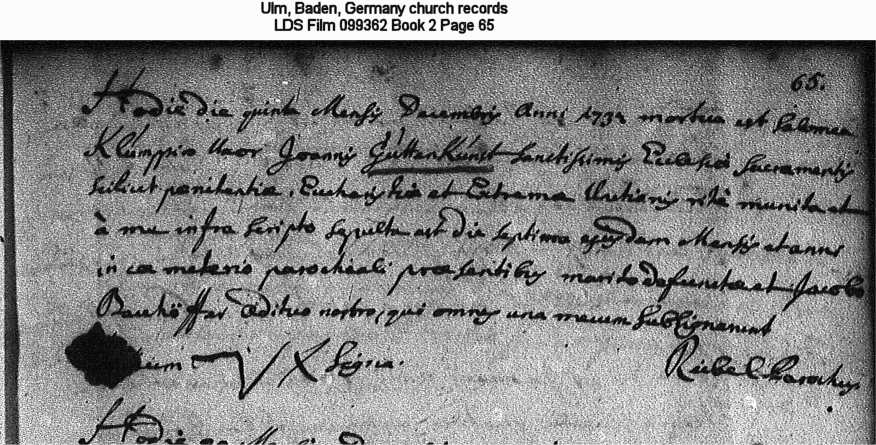 Ulm, Baden, Germany church records
LDS Film 099362 Book 2 Page 65
65.
Hodie die quinta Mensis Decembris Anni 1732 mortua est Salomea
Klumppin Uxor Joannis GuttenKunst Sanctissimis Eclesiae Sacramentis
scilicet paenitentiae, Eucharistiae et Extremae Unctionis rite munita et
à me infra scripto sepulta est die septima ejusdem Mensis et anni
in caemeterio parochiali praesentibus marito defunctae et Jacobo
aedituo nostro, qui omnes una mecum subsignarunt
Signa.
Parochus
Hodie